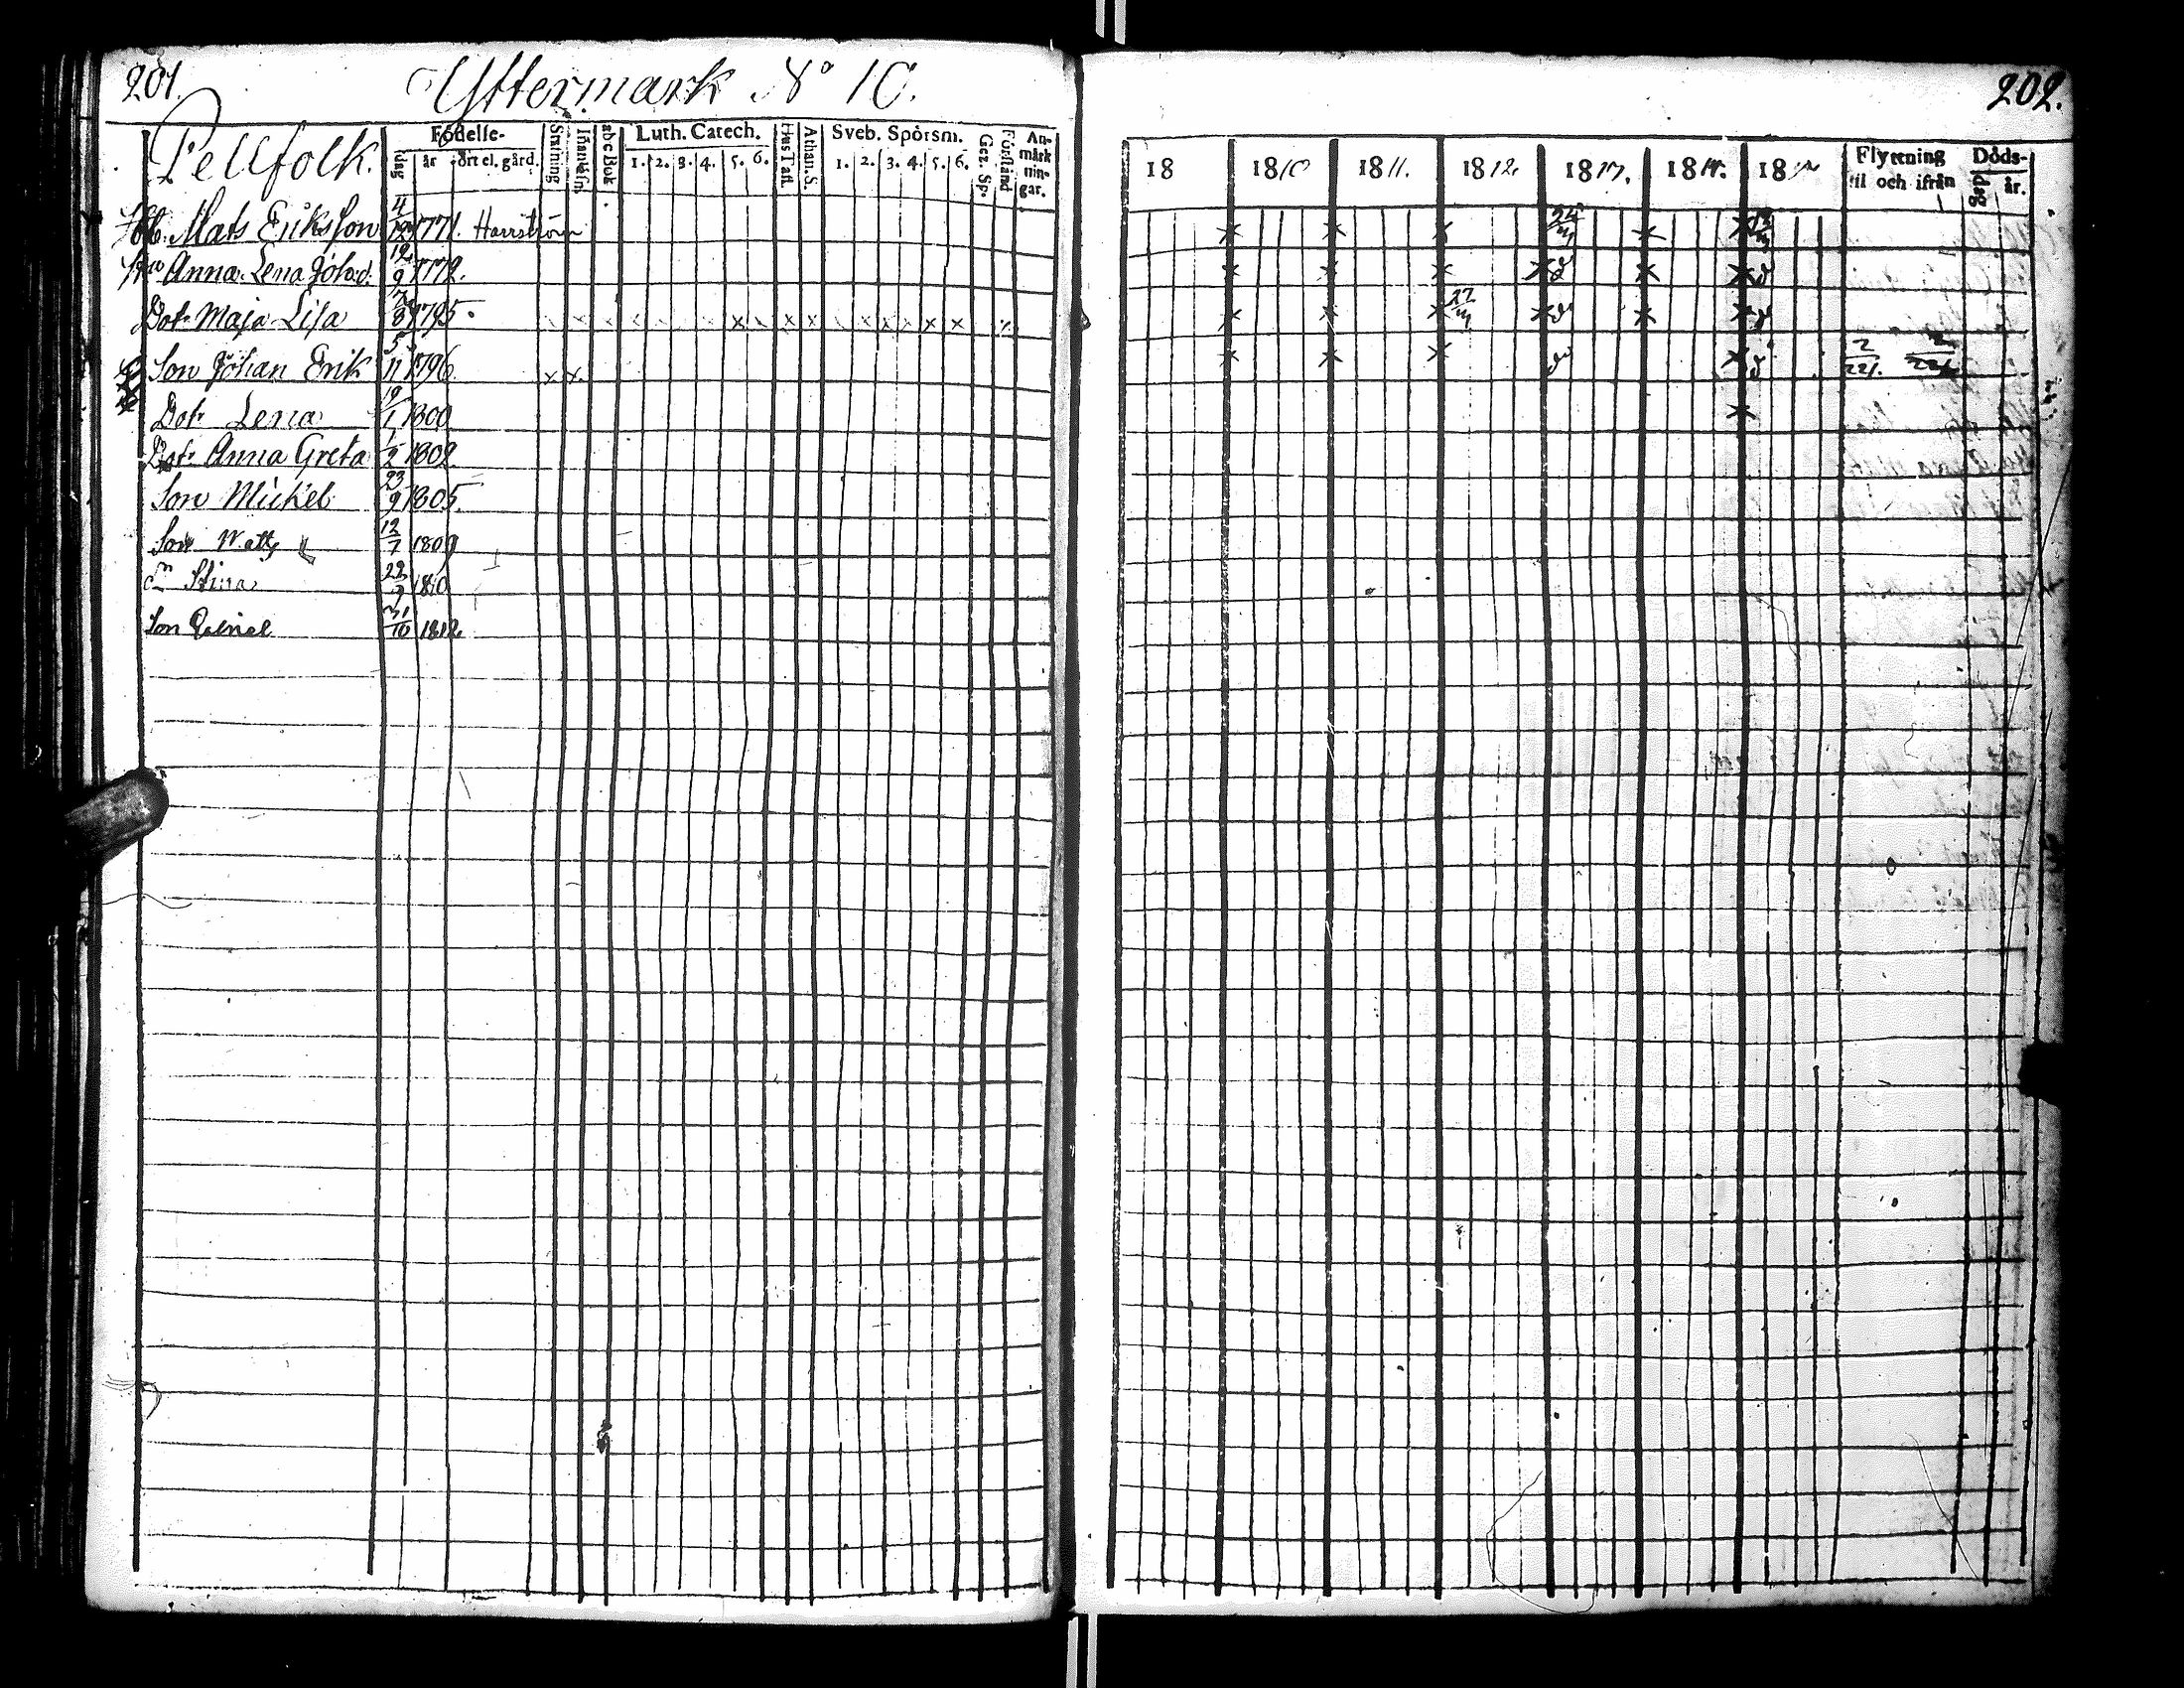 201. Yttermark No 10.
Pellfolk.
Födelse-
dag år ort el. gård.
Stafning Innanläsn. abc Bok
Luth. Catech.
1. 2. 3. 4. 5. 6.
Hus Tafl. Athan. S.
Sveb. Spörsm.
1. 2. 3. 4. 5. 6.
Gez. Sp. Förstånd
An-
märk
nin-
gar.
Mats Eriksson 4/12 1771. Harrström
Anna Lena Johsd. 12/9 1772.
Dotr Maja Lisa 7/8 1795.
Son Johan Erik 5/11 1796.
Dotr Lena 19/1 1800
Dotr Anna Greta 1/2 1802.
Son Mickel 23/9 1805.
Son Matts 12/7 1809
Stina 22/9 1810
Son 31/10 1812
202.
18 1810 1811. 1812. 18 18 18
Flyttning
til och ifrån
Döds-
dag år.
x x x x x
x x x x x x
x x x 27 x x x
x x x x 2/221.
x